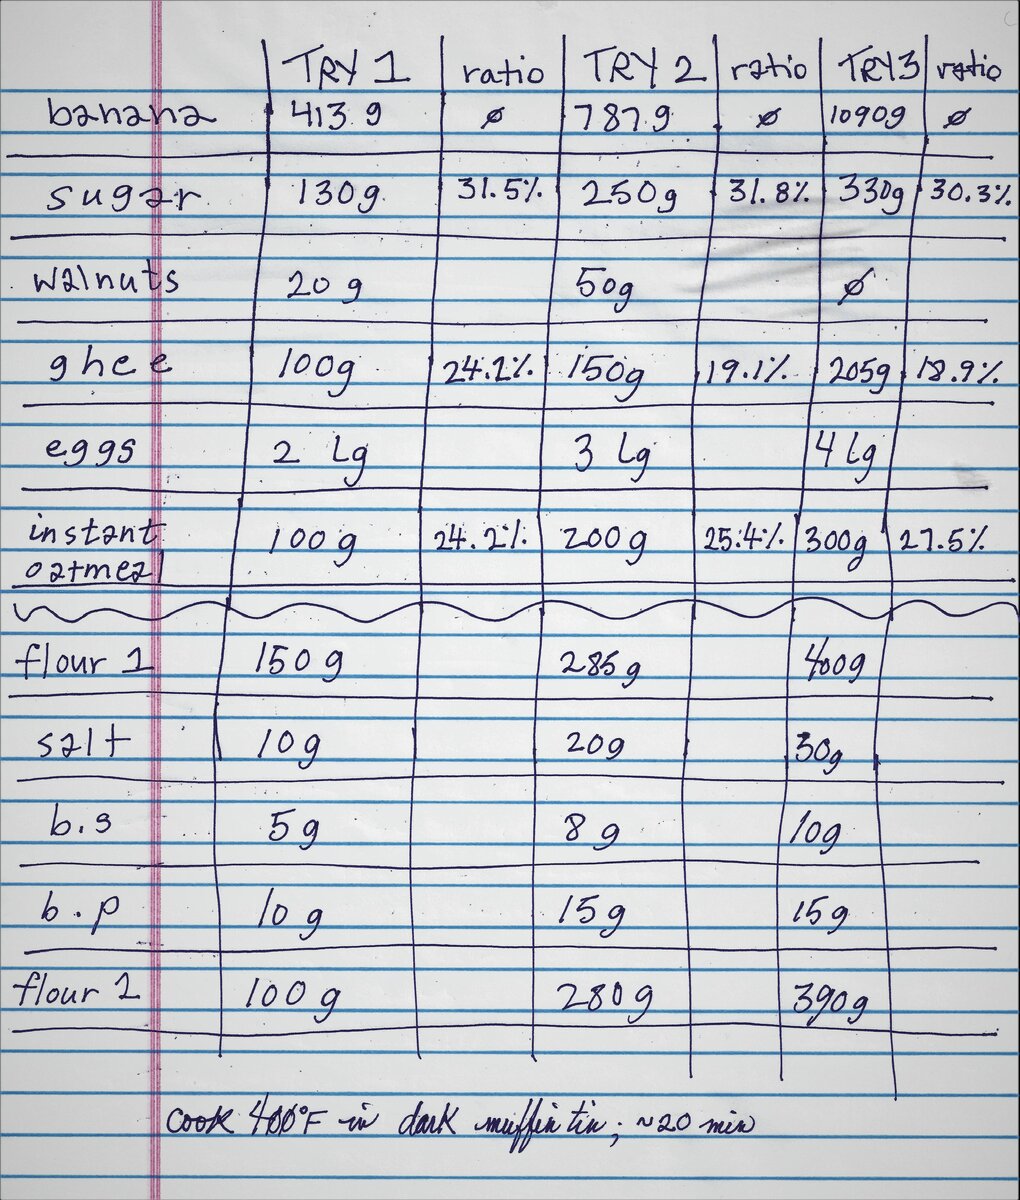 TRY 1 ratio TRY 2 ratio TRY 3 ratio
banana 413 g ø 787 g ø 1090g ø
sugar 130g. 31.5% 250g 31.8% 330g 30.3%
walnuts 20 g 50g ø
ghee 100g 24.2% 150g 19.1% 205g 18.9%
eggs 2 Lg 3 Lg 4 Lg
instant 100 g 24.2% 200g 25.4% 300g 27.5%
oatmeal
flour 1 150 g 285 g 400g
salt 10 g 20g 30g
b.s 5 g 8 g 10g
b.p 10 g 15 g 15g
flour 2 100 g 280g 390g
cook 400°F in dark muffin tin; ~20 min